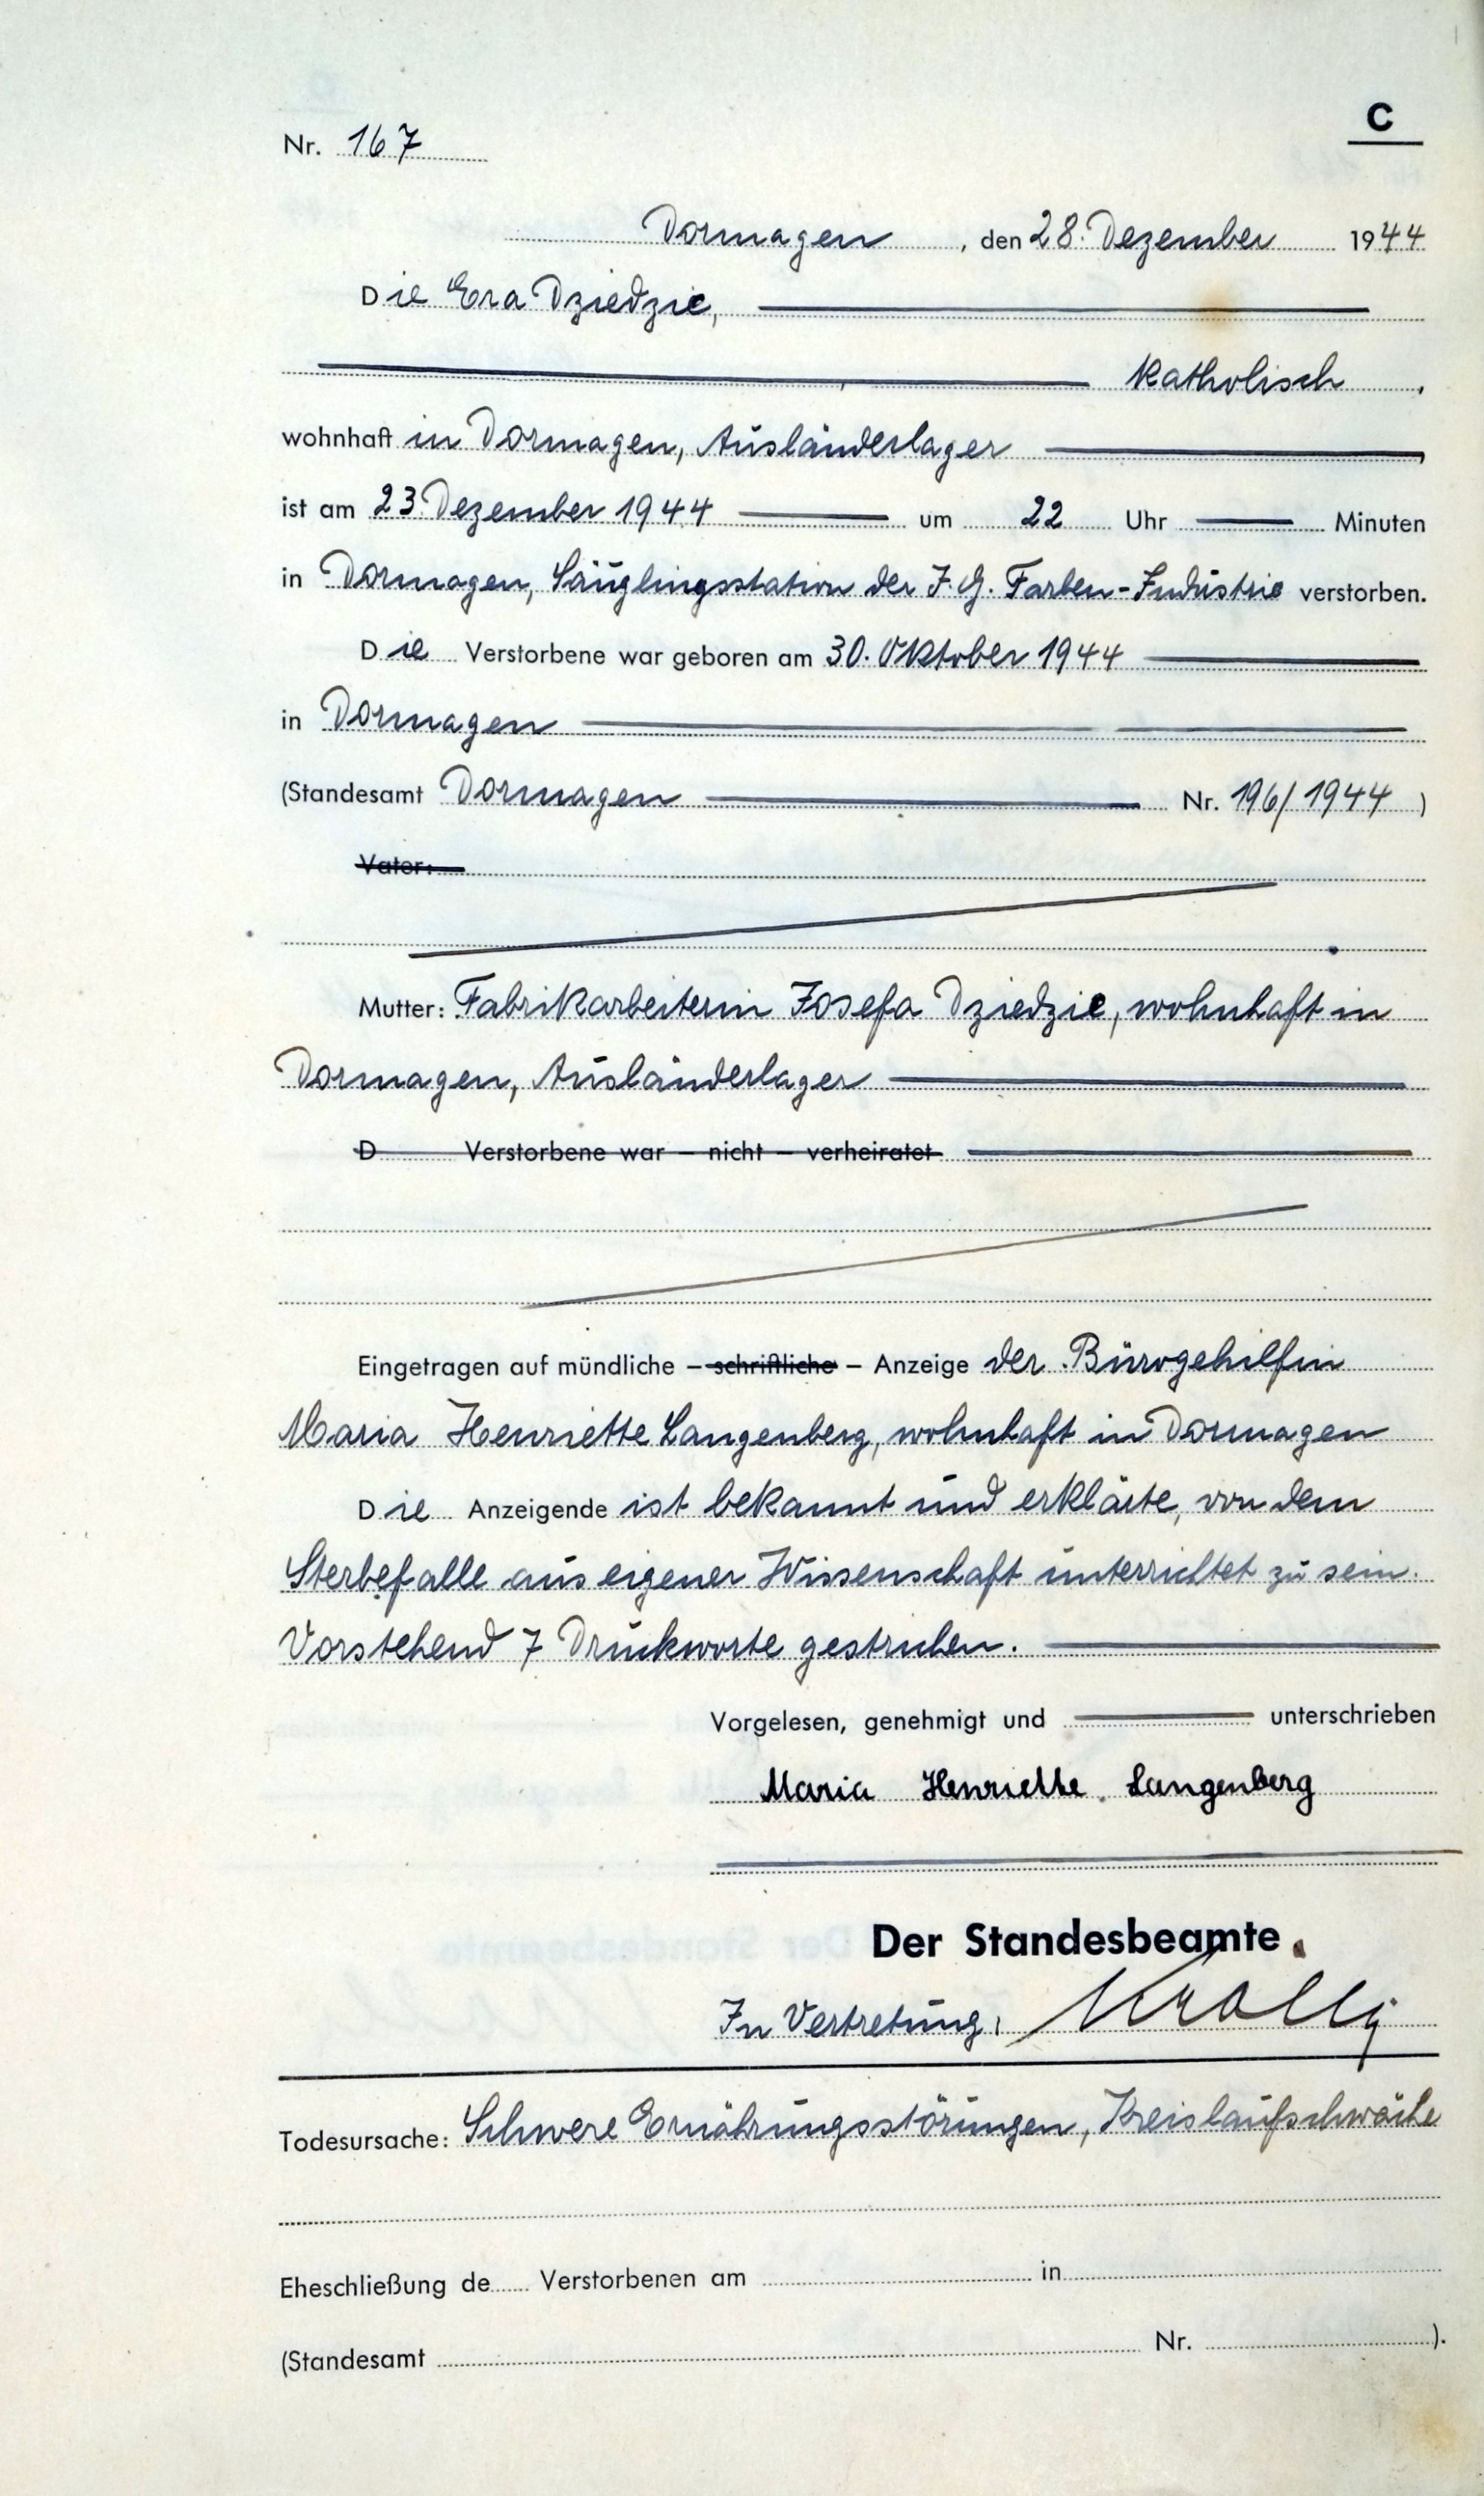 C
Nr. 167
Dormagen, den 28. Dezember 1944
Die Eva Dziedzic,
katholisch,
wohnhaft in Dormagen, Ausländerlager
ist am 23. Dezember 1944 um 22 Uhr Minuten
in Dormagen, Säuglingsstation der I. G. Farben-Industrie verstorben.
Die Verstorbene war geboren am 30. Oktober 1944
in Dormagen
(Standesamt Dormagen Nr. 196/1944)
Vater:
Mutter: Fabrikarbeiterin Josefa Dziedzic, wohnhaft in
Dormagen, Ausländerlager
D Verstorbene war – nicht – verheiratet
Eingetragen auf mündliche – schriftliche – Anzeige der Bürogehilfin
Maria Henriette Langenberg, wohnhaft in Dormagen
Die Anzeigende ist bekannt und erklärte, von dem
Sterbefalle aus eigener Wissenschaft unterrichtet zu sein.
Vorstehend 7 Druckworte gestrichen.
Vorgelesen, genehmigt und unterschrieben
Maria Henriette Langenberg
Der Standesbeamte
In Vertretung:
Todesursache: Schwere Ernährungsstörungen, Kreislaufschwäche
Eheschließung de Verstorbenen am in
(Standesamt Nr. ).